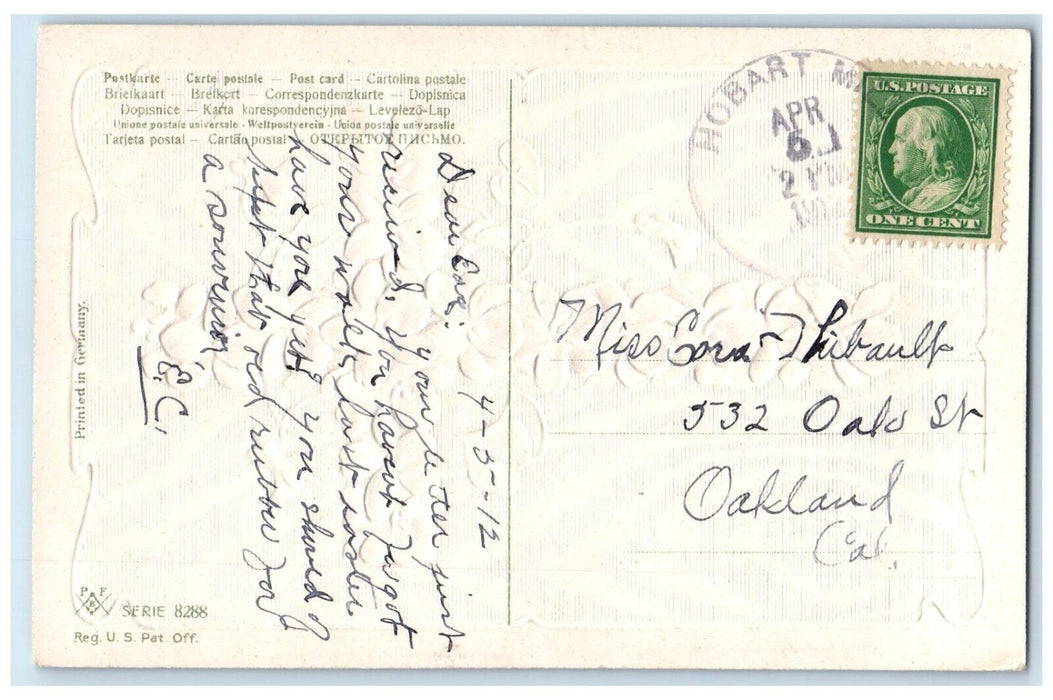 Postkarte — Carte postale — Post card — Cartolina postale
Briefkaart — Brefkort — Correspondenzkarte — Dopisnica
Dopisnice — Karta korespondencyjna — Levelező-Lap
Unione postale universale - Weltpostverein - Union postale universelle
Tarjeta postal — Cartão postal — ОТКРЫТОЕ ПИСЬМО.
4-5-12
Dear Coz: your letter just
recieved. You havent forgot
your walk last easter
have you yet? you should of
kept that red rubber for
a souvinior
E.C.
Printed in Germany.
P F
B
SERIE 8288
Reg. U. S. Pat Off.
HOBART M
APR
5
2 PM
U.S. POSTAGE
ONE CENT
Miss Cora Thibault
532 Oak St
Oakland
Cal.